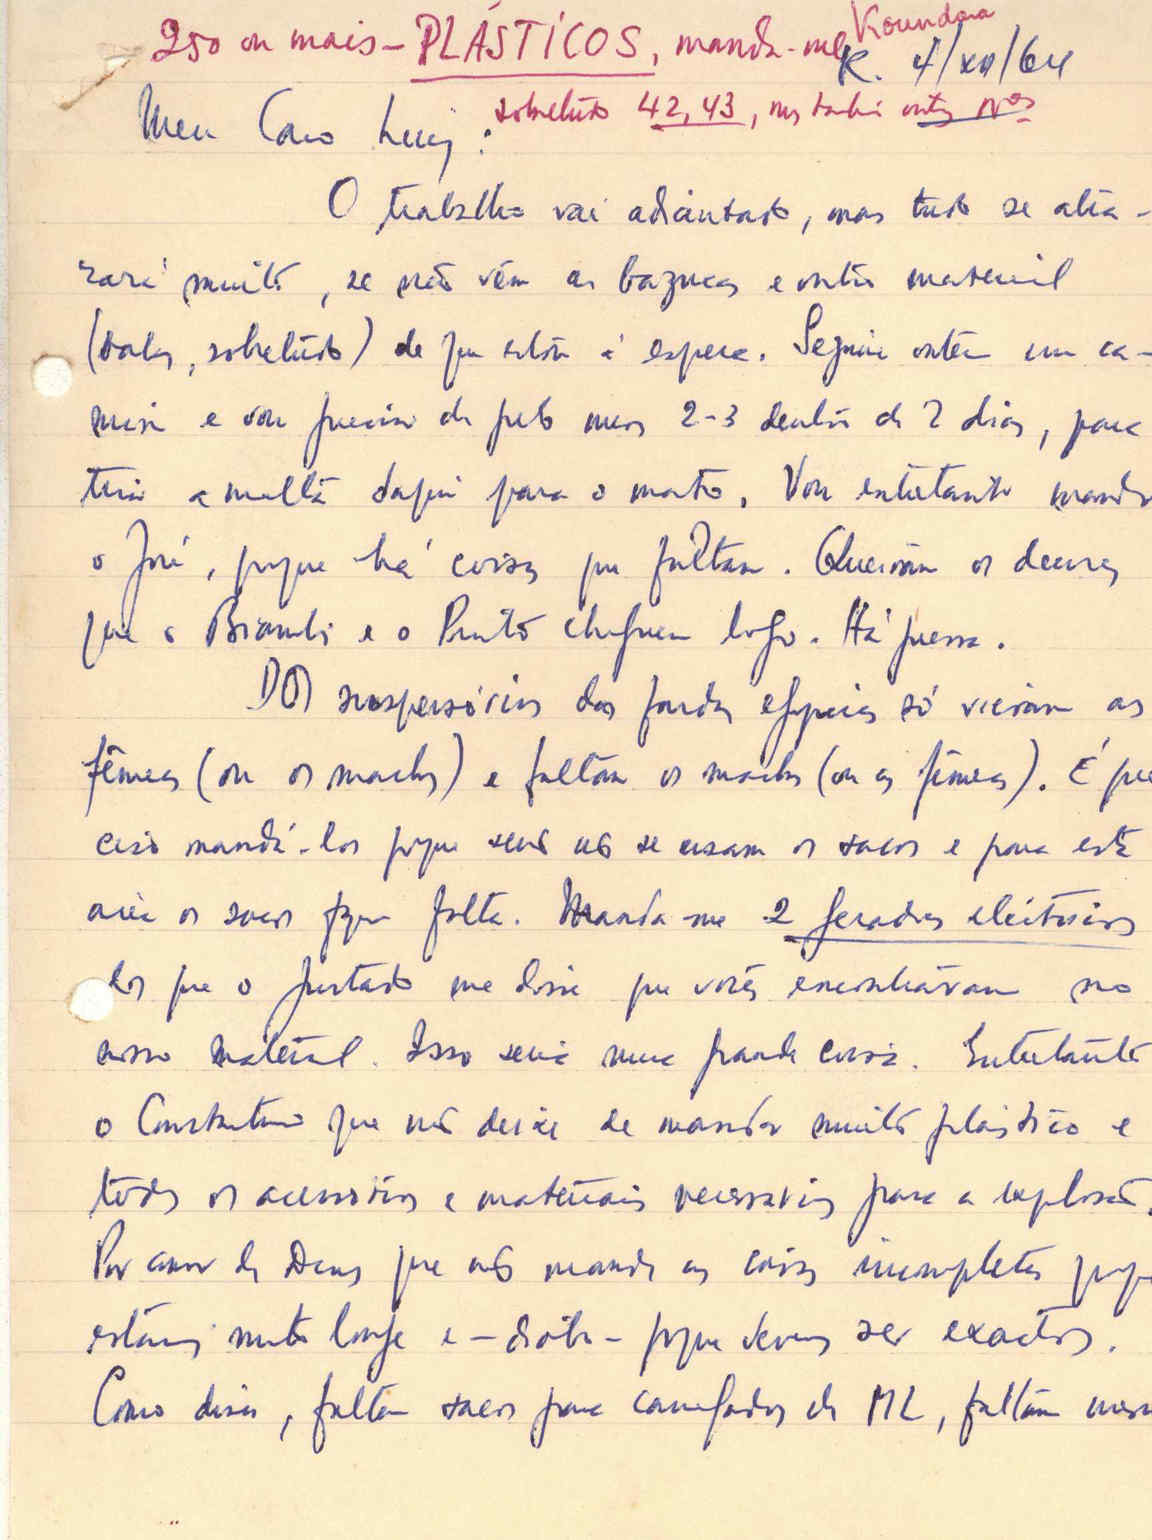 250 ou mais - PLÁSTICOS, manda-me Koundara
K. 4/XII/64
sobretudo 42, 43, mas também outros Nos
Meu Caro Luiz:
O trabalho vai adiantado, mas tudo se atra-
zará muito, se não vêm as bazucas e outro material
(balas, sobretudo) de que estou à espera. Seguiu ontem um ca-
mião e vou precisar de pelo menos 2-3 dentro de 2 dias, para
tirar a malta daqui para o mato. Vou entretanto mandar
o José, porque há coisas que faltam. Queiram os deuses
que o Bioambi e o Pinto cheguem logo. Há pressa.
DOS suspensórios das fardas egípcias só vieram as
fêmeas (ou os machos) e faltam os machos (ou as fêmeas). É pre
ciso mandá-los porque senão não se usam os sacos e para esta
área os sacos fazem falta. Manda-me 2 geradores eléctricos
dos que o Furtado me disse que vocês encontraram no
nosso material. Isso seria uma grande coisa. Entretanto
o Constantino que não deixe de mandar muito plástico e
todos os acessórios e materiais necessários para a explosão.
Por amor de Deus que não mande as coisas incompletas porque
estamos muito longe e - diabo - porque devemos ser exactos.
Como disse, faltam sacos para carregadores de ML, faltam